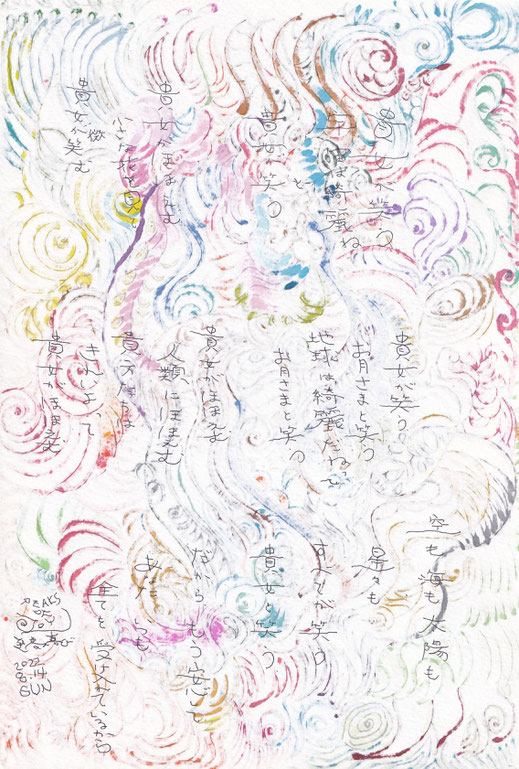 貴女が笑う
雪は綺麗ね
と
貴女が笑う
貴女がほほえむ
小さな花を見て
貴女が微笑む
貴女が笑う
お月さまと笑う
地球は綺麗だねって
お月さまと笑う
貴女がほほえむ
人類にほほえむ
貴方たちは
きれいよって
貴女がほほえむ
空も海も太陽も
星々も
すべてが笑う
貴女と笑う
だからもう安心して
あなたも
全てを受け入れているから
2022
8.14
SUN